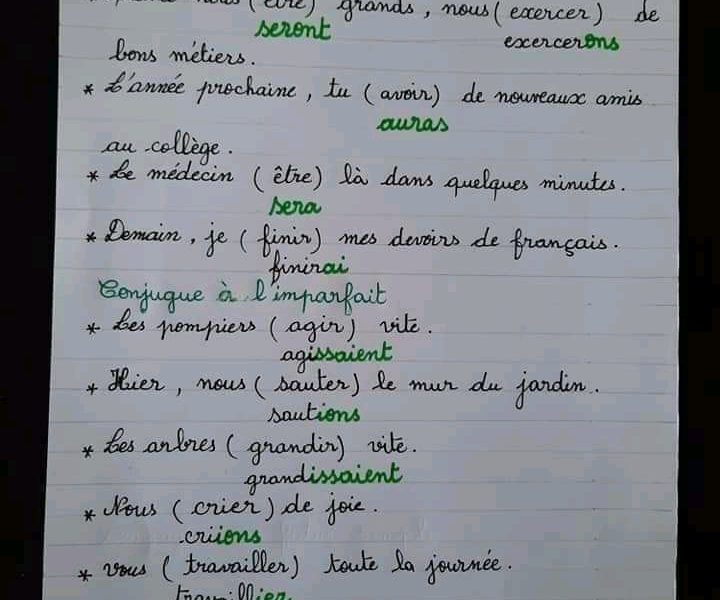 nous (être) grands, nous (exercer) de
seront exercerons
bons métiers.
* L'année prochaine, tu (avoir) de nouveaux amis
auras
au collège.
* Le médecin (être) là dans quelques minutes.
sera
* Demain, je (finir) mes devoirs de français.
finirai
Conjugue à l'imparfait
* Les pompiers (agir) vite.
agissaient
* Hier, nous (sauter) le mur du jardin.
sautions
* Les arbres (grandir) vite.
grandissaient
* Nous (crier) de joie.
criions
* vous (travailler) toute la journée.